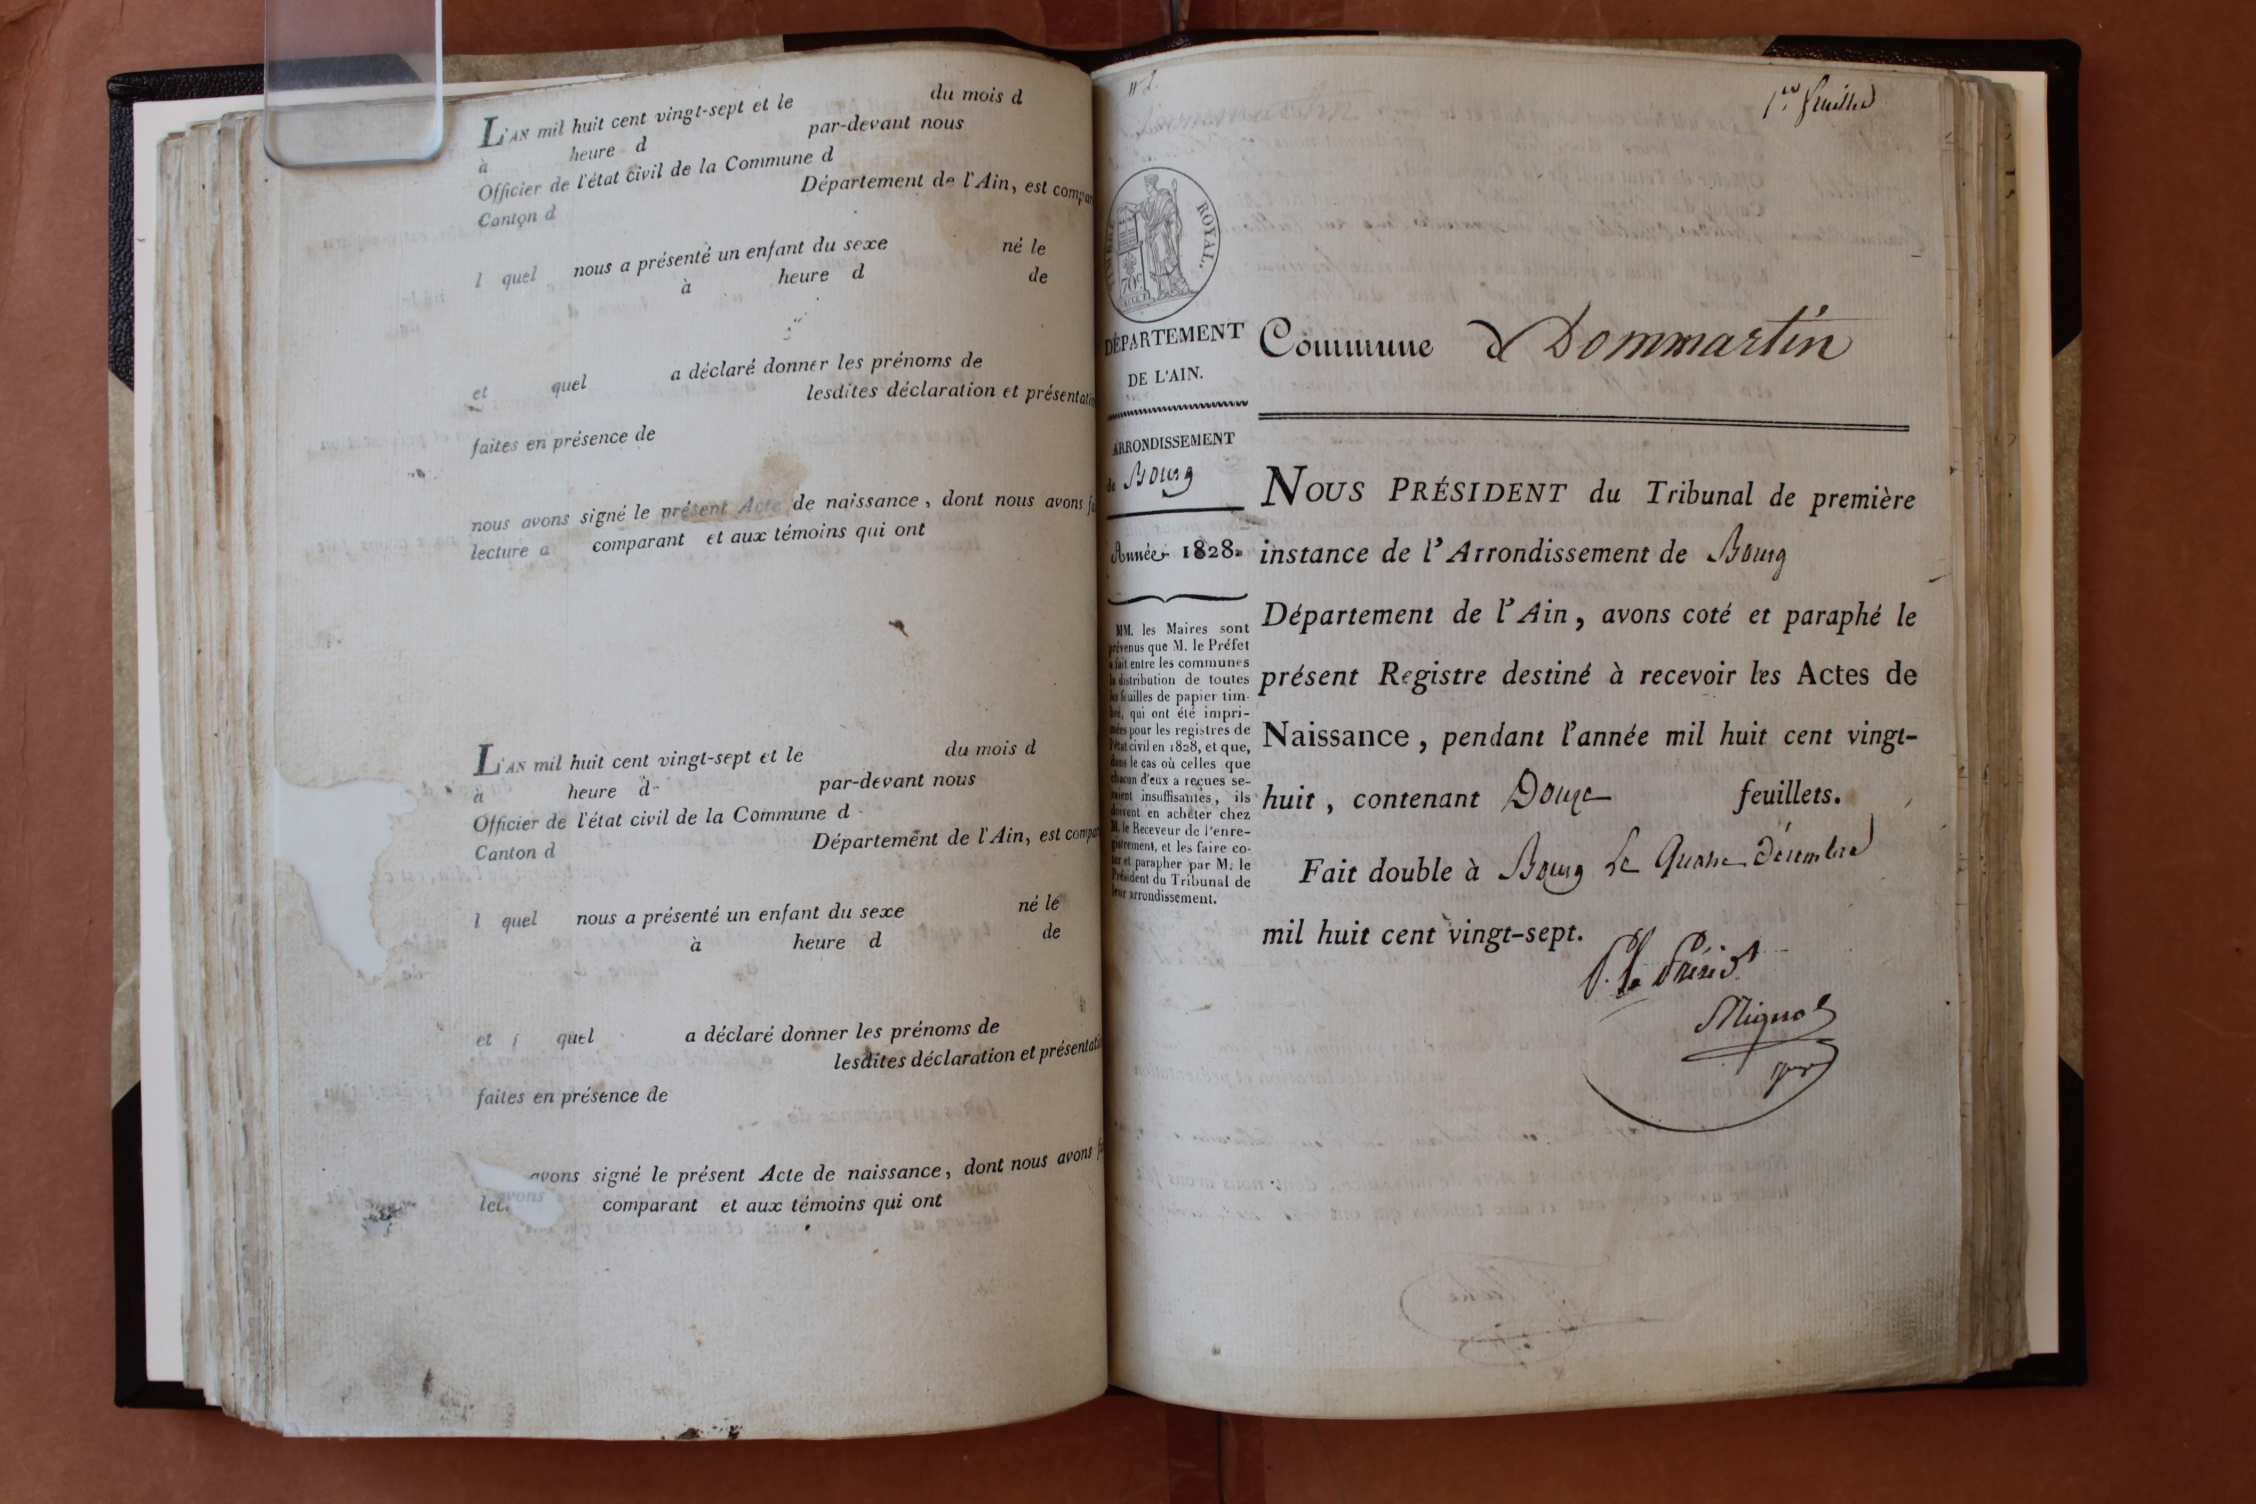 L'AN mil huit cent vingt-sept et le du mois d
à heure d par-devant nous
Officier de l'état civil de la Commune d
Canton d Département de l'Ain, est compar
l quel nous a présenté un enfant du sexe né le
à heure d de
et quel a déclaré donner les prénoms de
lesdites déclaration et présentation
faites en présence de
nous avons signé le présent Acte de naissance, dont nous avons fa
lecture a comparant et aux témoins qui ont
L'AN mil huit cent vingt-sept et le du mois d
à heure d par-devant nous
Officier de l'état civil de la Commune d
Canton d Département de l'Ain, est compar
l quel nous a présenté un enfant du sexe né le
à heure d de
et quel a déclaré donner les prénoms de
lesdites déclaration et présentati
faites en présence de
avons signé le présent Acte de naissance, dont nous avons f
lec comparant et aux témoins qui ont
1er feuillet
TIMBRE ROYAL.
70c
DÉPARTEMENT
DE L'AIN.
ARRONDISSEMENT
de Bourg
Année 1828.
MM. les Maires sont
prévenus que M. le Préfet
a fait entre les communes
la distribution de toutes
les feuilles de papier tim-
bré, qui ont été impri-
mées pour les registres de
l'état civil en 1828, et que,
dans le cas où celles que
chacun d'eux a reçues se-
raient insuffisantes, ils
doivent en acheter chez
M. le Receveur de l'enre-
gistrement, et les faire co-
ter et parapher par M. le
Président du Tribunal de
leur arrondissement.
Commune d Dommartin
NOUS PRÉSIDENT du Tribunal de première
instance de l'Arrondissement de Bourg
Département de l'Ain, avons coté et paraphé le
présent Registre destiné à recevoir les Actes de
Naissance, pendant l'année mil huit cent vingt-
huit, contenant Douze feuillets.
Fait double à Bourg le Quinze décembre
mil huit cent vingt-sept.
P. le Présidt